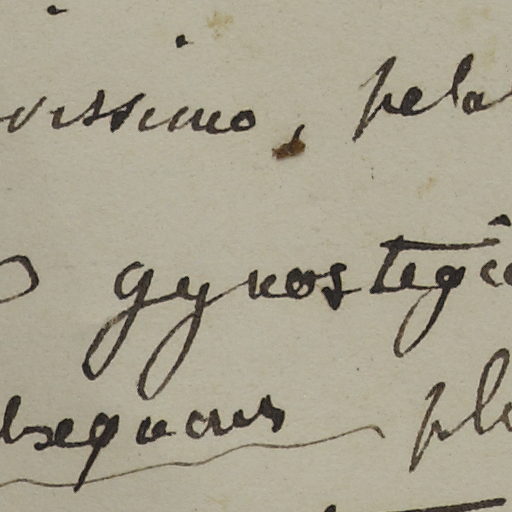 vissimo, pela
gynostegio
bsequans pl